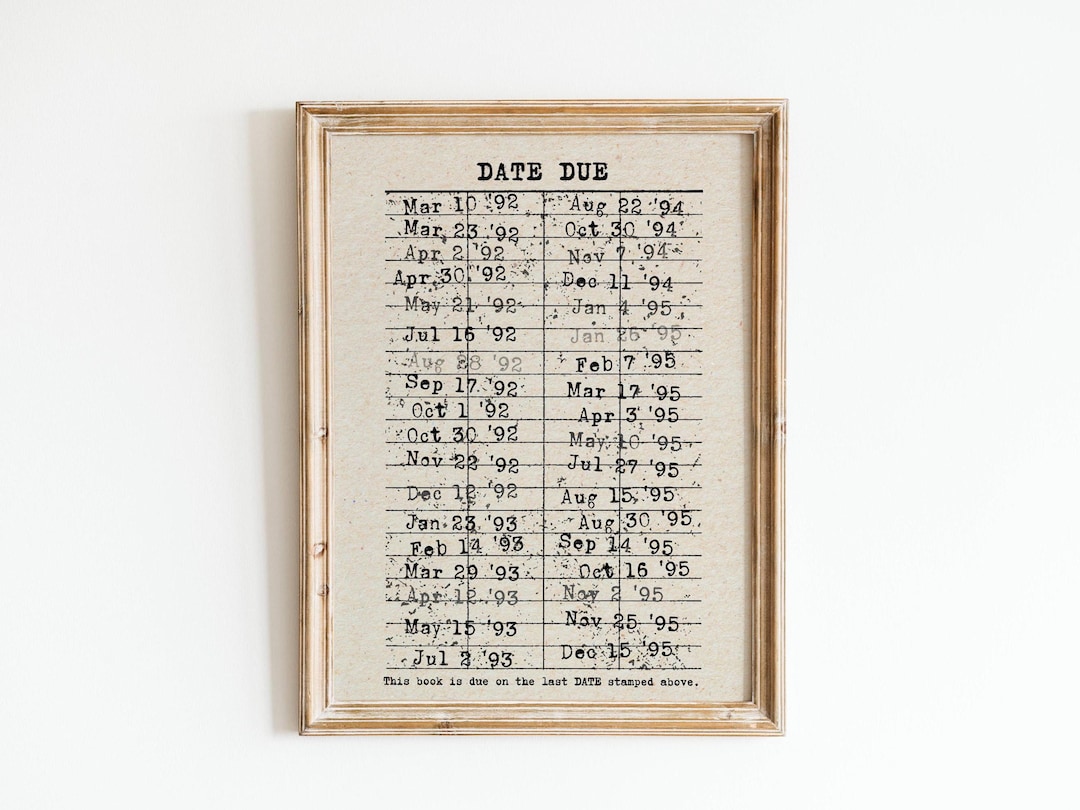 DATE DUE
Mar 10 '92
Mar 23 '92
Apr 2 '92
Apr 30 '92
May 21 '92
Jul 16 '92
Aug 28 '92
Sep 17 '92
Oct 1 '92
Oct 30 '92
Nov 22 '92
Dec 12 '92
Jan 23 '93
Feb 14 '93
Mar 29 '93
Apr 12 '93
May 15 '93
Jul 2 '93
Aug 22 '94
Oct 30 '94
Nov 7 '94
Dec 11 '94
Jan 4 '95
Jan 26 '95
Feb 7 '95
Mar 17 '95
Apr 3 '95
May 10 '95
Jul 27 '95
Aug 15 '95
Aug 30 '95
Sep 14 '95
Oct 16 '95
Nov 2 '95
Nov 25 '95
Dec 15 '95
This book is due on the last DATE stamped above.